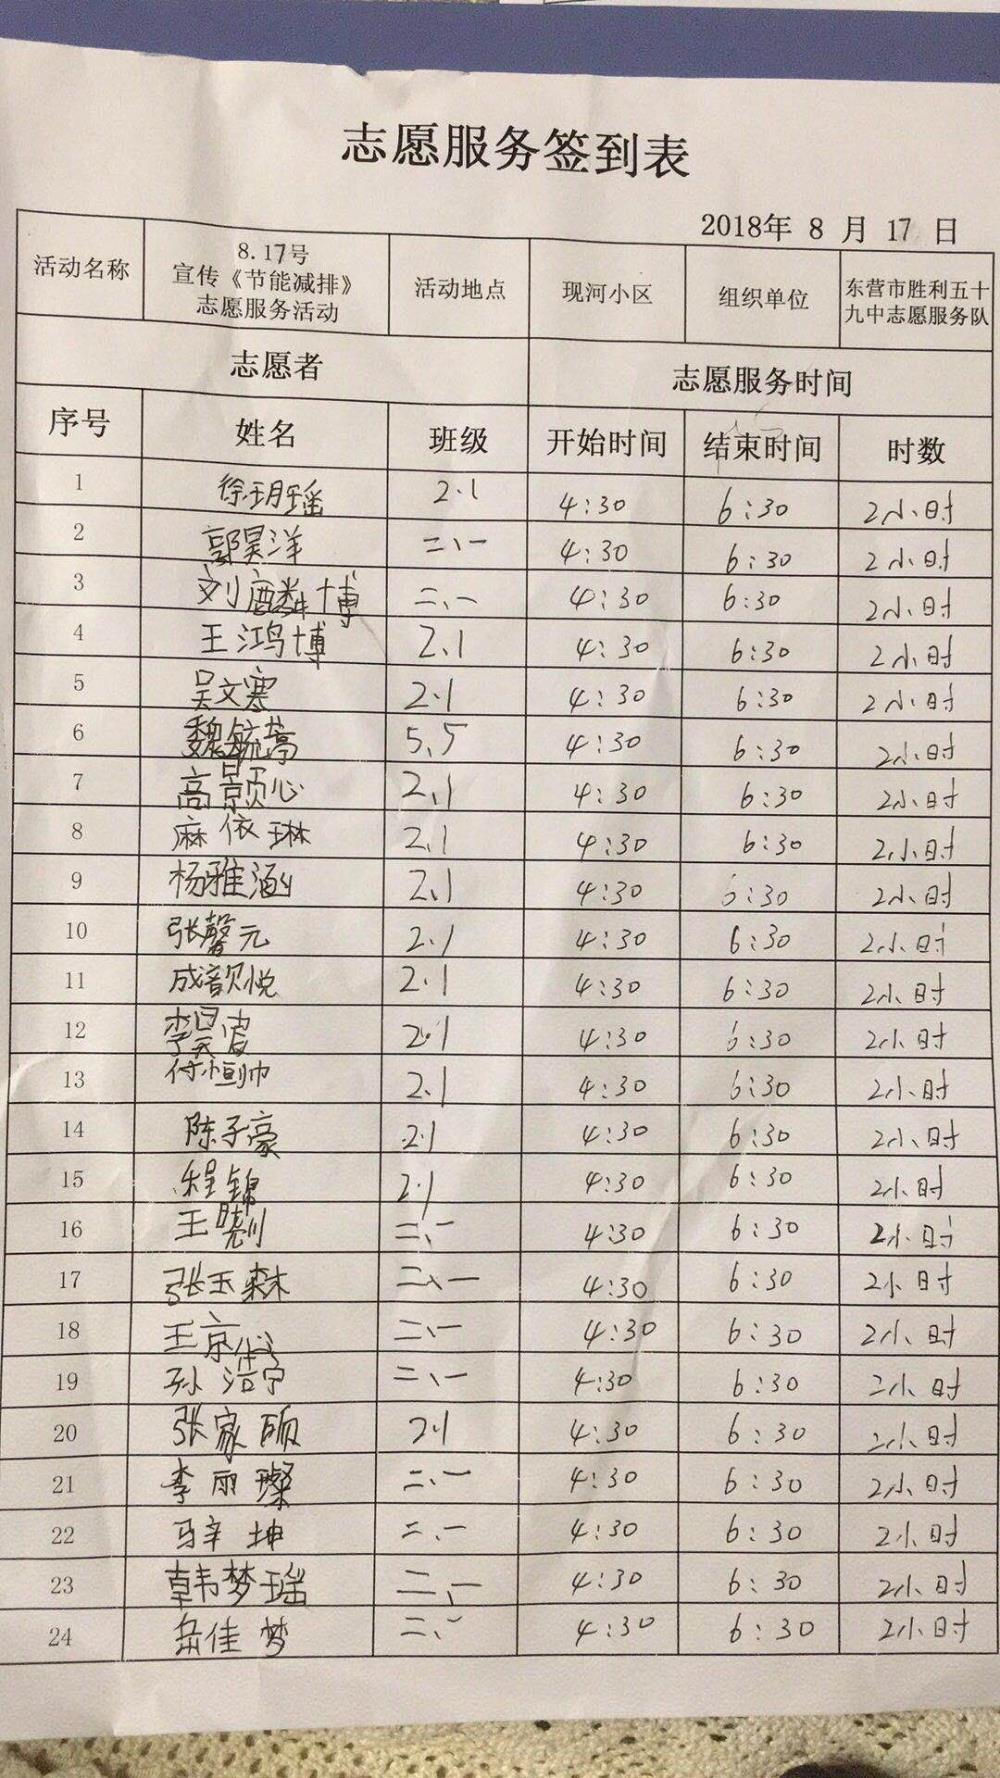 志愿服务签到表
2018年 8 月 17 日
活动名称 8.17号 宣传《节能减排》 志愿服务活动 活动地点 现河小区 组织单位 东营市胜利五十九中志愿服务队
志愿者 志愿服务时间
序号 姓名 班级 开始时间 结束时间 时数
1 徐玥瑶 2.1 4:30 6:30 2小时
2 郭昊洋 二、一 4:30 6:30 2小时
3 刘麟博 二、一 4:30 6:30 2小时
4 王鸿博 2.1 4:30 6:30 2小时
5 吴文寒 2.1 4:30 6:30 2小时
6 魏毓葶 5、5 4:30 6:30 2小时
7 高景心 2、1 4:30 6:30 2小时
8 麻依琳 2.1 4:30 6:30 2小时
9 杨雅涵 2、1 4:30 6:30 2小时
10 张馨元 2.1 4:30 6:30 2小时
11 成歆悦 2.1 4:30 6:30 2小时
12 李昊 2.1 4:30 6:30 2小时
13 付恒帅 2.1 4:30 6:30 2小时
14 陈子豪 2.1 4:30 6:30 2小时
15 程锦 2.1 4:30 6:30 2小时
16 王 二、一 4:30 6:30 2小时
17 张玉森 二、一 4:30 6:30 2小时
18 王京 二、一 4:30 6:30 2小时
19 孙浩宁 二、一 4:30 6:30 2小时
20 张家硕 2.1 4:30 6:30 2小时
21 李丽璨 二、一 4:30 6:30 2小时
22 马辛坤 二、一 4:30 6:30 2小时
23 韩梦瑶 二、一 4:30 6:30 2小时
24 岳佳梦 二、一 4:30 6:30 2小时